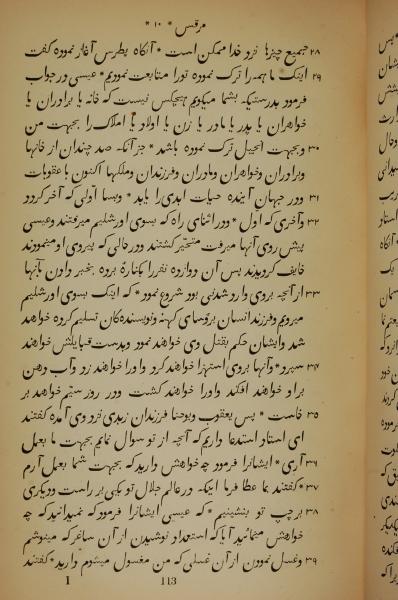 مرقس * ۱۰ *
۲۸ جمیع چیزها نزد خدا ممکن است * آنگاه پطرس آغاز نموده گفت
۲۹ اینک ما همه را ترک نموده تورا متابعت نمودیم * عیسی در جواب
فرمود بدرستیکه بشما میگویم هیچکس نیست که خانه یا برادران یا
خواهران یا پدر یا مادر یا زن یا اولاد یا املاک را بجهت من
۳۰ وبجهت انجیل ترک نموده باشد * جز آنکه صد چندان از خانها
وبرادران وخواهران ومادران وفرزندان وملکها اکنون با عقوبات
۳۱ ودر جهان آینده حیات ابدی را یابد * وبسا اولی که آخر کردد
۳۲ وآخری که اول * ودر اثنای راه که بسوی اورشلیم میرفتند وعیسی
پیش روی آنها میرفت متحیر کشتند ودر حالی که پیروی او مینمودند
خایف کردیدند پس آن دوازده نفر را بکناره برده بخبر دادن بآنها
۳۳ از آنچه بروی وارد شدنی بود شروع نمود * که اینک بسوی اورشلیم
میرویم وفرزند انسان برؤسای کهنه ونویسنده کان تسلیم کرده خواهد
شد وایشان حکم بقتل وی خواهند نمود وبدست قبایلش خواهند
۳۴ سپرد * وآنها بروی استهزا خواهند کرد واورا خواهند زد وآب دهن
بر او خواهند افکند واورا خواهند کشت ودر روز سیم خواهد بر
۳۵ خاست * پس یعقوب ویوحنا فرزندان زبدی نزد وی آمده کفتند
ای استاد استدعا داریم که آنچه از تو سوال نمایم بجهت ما بعمل
۳۶ آری * ایشانرا فرمود چه خواهش دارید که بجهت شما بعمل آرم
۳۷ * کفتند بما عطا فرما اینکه در عالم جلال تو یکی بر راست ودیکری
۳۸ بر چپ تو بنشینیم * که عیسی ایشانرا فرمود که نمیدانید که چه
خواهش مینمائید آیا که استعداد نوشیدن از آن ساغر که مینوشم
۳۹ وغسل نمودن از آن غسلی که من مغسول میشوم دارید * کفتند
I
113